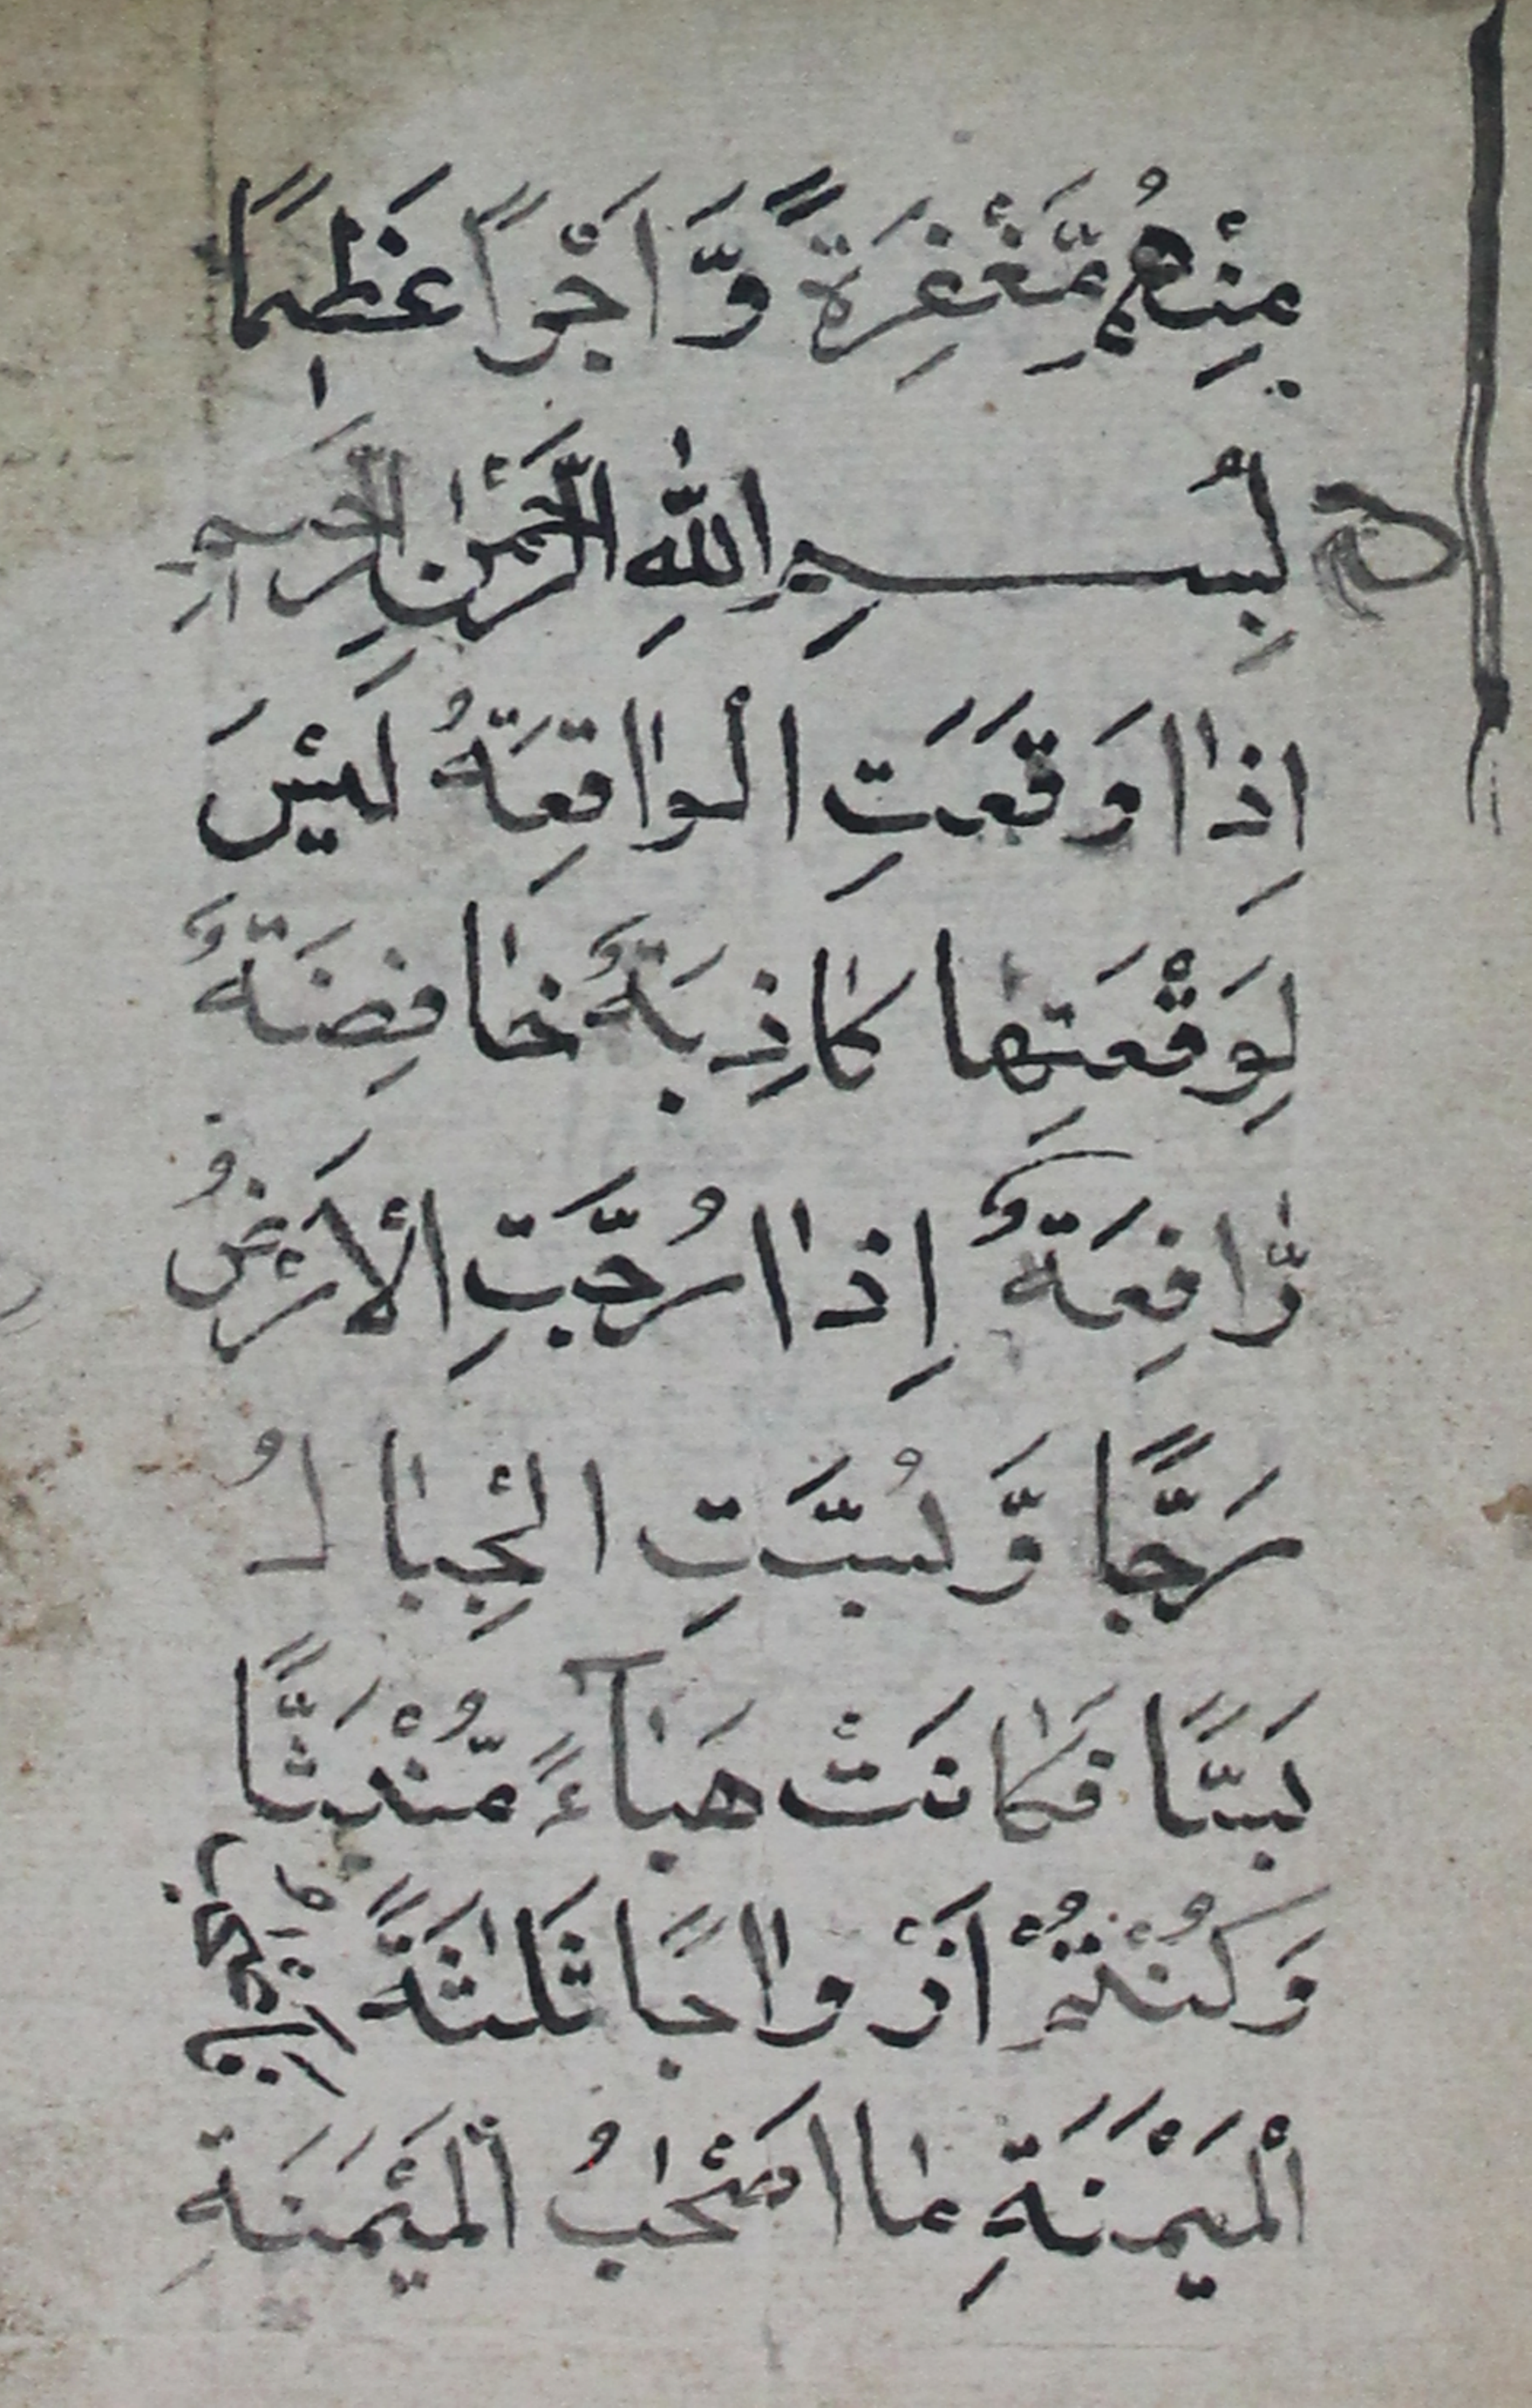 مِنْهُمْ مَّغْفِرَةً وَّاَجْرًا عَظِيمًا
بِسْمِ اللّٰهِ الرَّحْمٰنِ الرَّحِيمِ
اِذٰا وَقَعَتِ الْوٰاقِعَةُ لَيْسَ
لِوَقْعَتِهٰا كٰاذِبَةٌ خٰافِضَةٌ
رّٰافِعَةٌ اِذٰا رُجَّتِ الْأَرْضُ
رَجًّا وَّبُسَّتِ الْجِبٰالُ
بَسًّا فَكٰانَتْ هَبٰآءً مُّنْبَثًّا
وَكُنْتُمْ اَزْوٰاجًا ثَلٰثَةً فَاَصْحٰبُ
الْمَيْمَنَةِ مٰا اَصْحٰبُ الْمَيْمَنَةِ